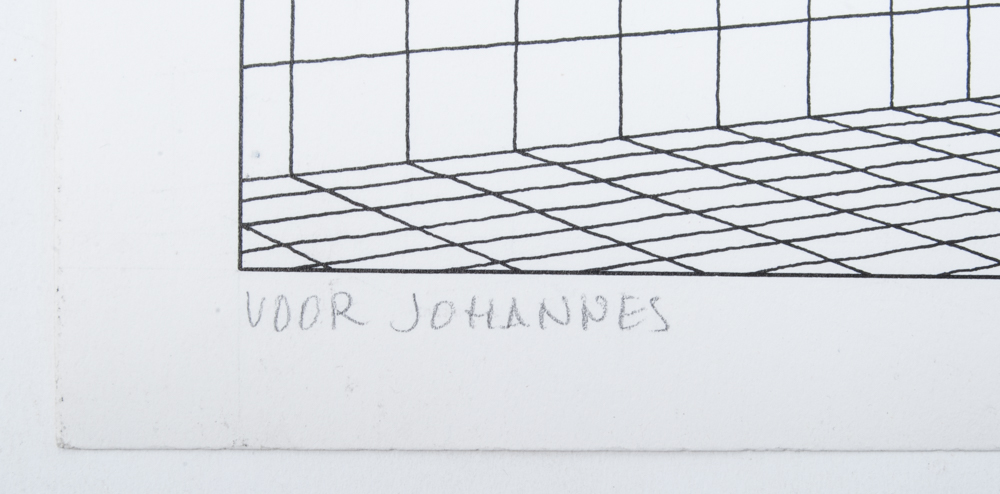 VOOR JOHANNES